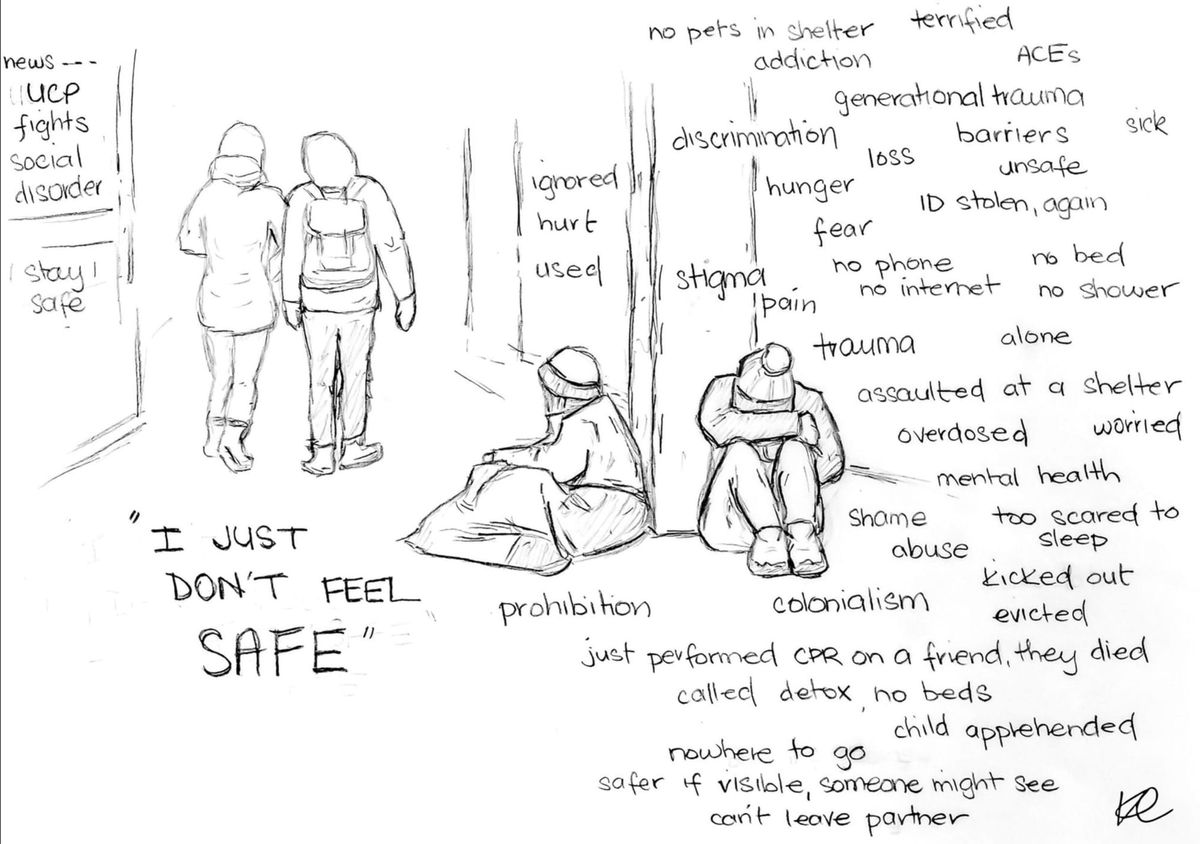 news ---
UCP
fights
social
disorder
stay
safe
"I JUST
DON'T FEEL
SAFE"
ignored
hurt
used
no pets in shelter
terrified
addiction
ACEs
generational trauma
discrimination
barriers
sick
loss
unsafe
hunger
ID stolen, again
fear
no phone
no bed
stigma
no internet
no shower
pain
trauma
alone
assaulted at a shelter
overdosed
worried
mental health
shame
too scared to
sleep
abuse
kicked out
prohibition
colonialism
evicted
just performed CPR on a friend, they died
called detox, no beds
child apprehended
nowhere to go
safer if visible, someone might see
can't leave partner